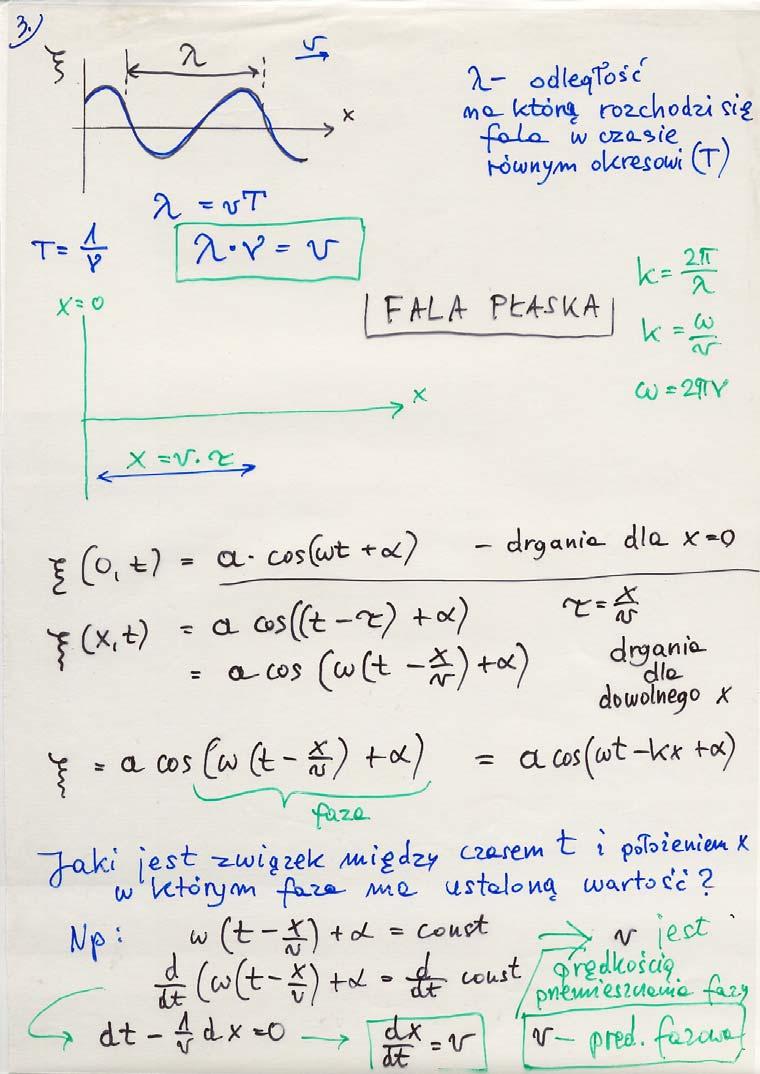 3.)
ξ
λ
v
x
λ – odległość
na którą rozchodzi się
fala w czasie
równym okresowi (T)
λ = vT
T = 1/ν
λ · ν = v
k = 2π/λ
x = 0
FALA PŁASKA
k = ω/v
ω = 2πν
x
x = v · τ
ξ(0, t) = a · cos(ωt + α) – drgania dla x = 0
ξ(x, t) = a cos((t – τ) + α) τ = x/v
= a cos (ω(t – x/v) + α) drgania
dla
dowolnego x
ξ = a cos (ω(t – x/v) + α) = a cos(ωt – kx + α)
faza
Jaki jest związek między czasem t i położeniem x
w którym faza ma ustaloną wartość?
Np: ω(t – x/v) + α = const ⇒ v jest
prędkością
przemieszczania fazy
d/dt (ω(t – x/v) + α = d/dt const
dt – 1/v dx = 0 → dx/dt = v
v – pręd. fazowa